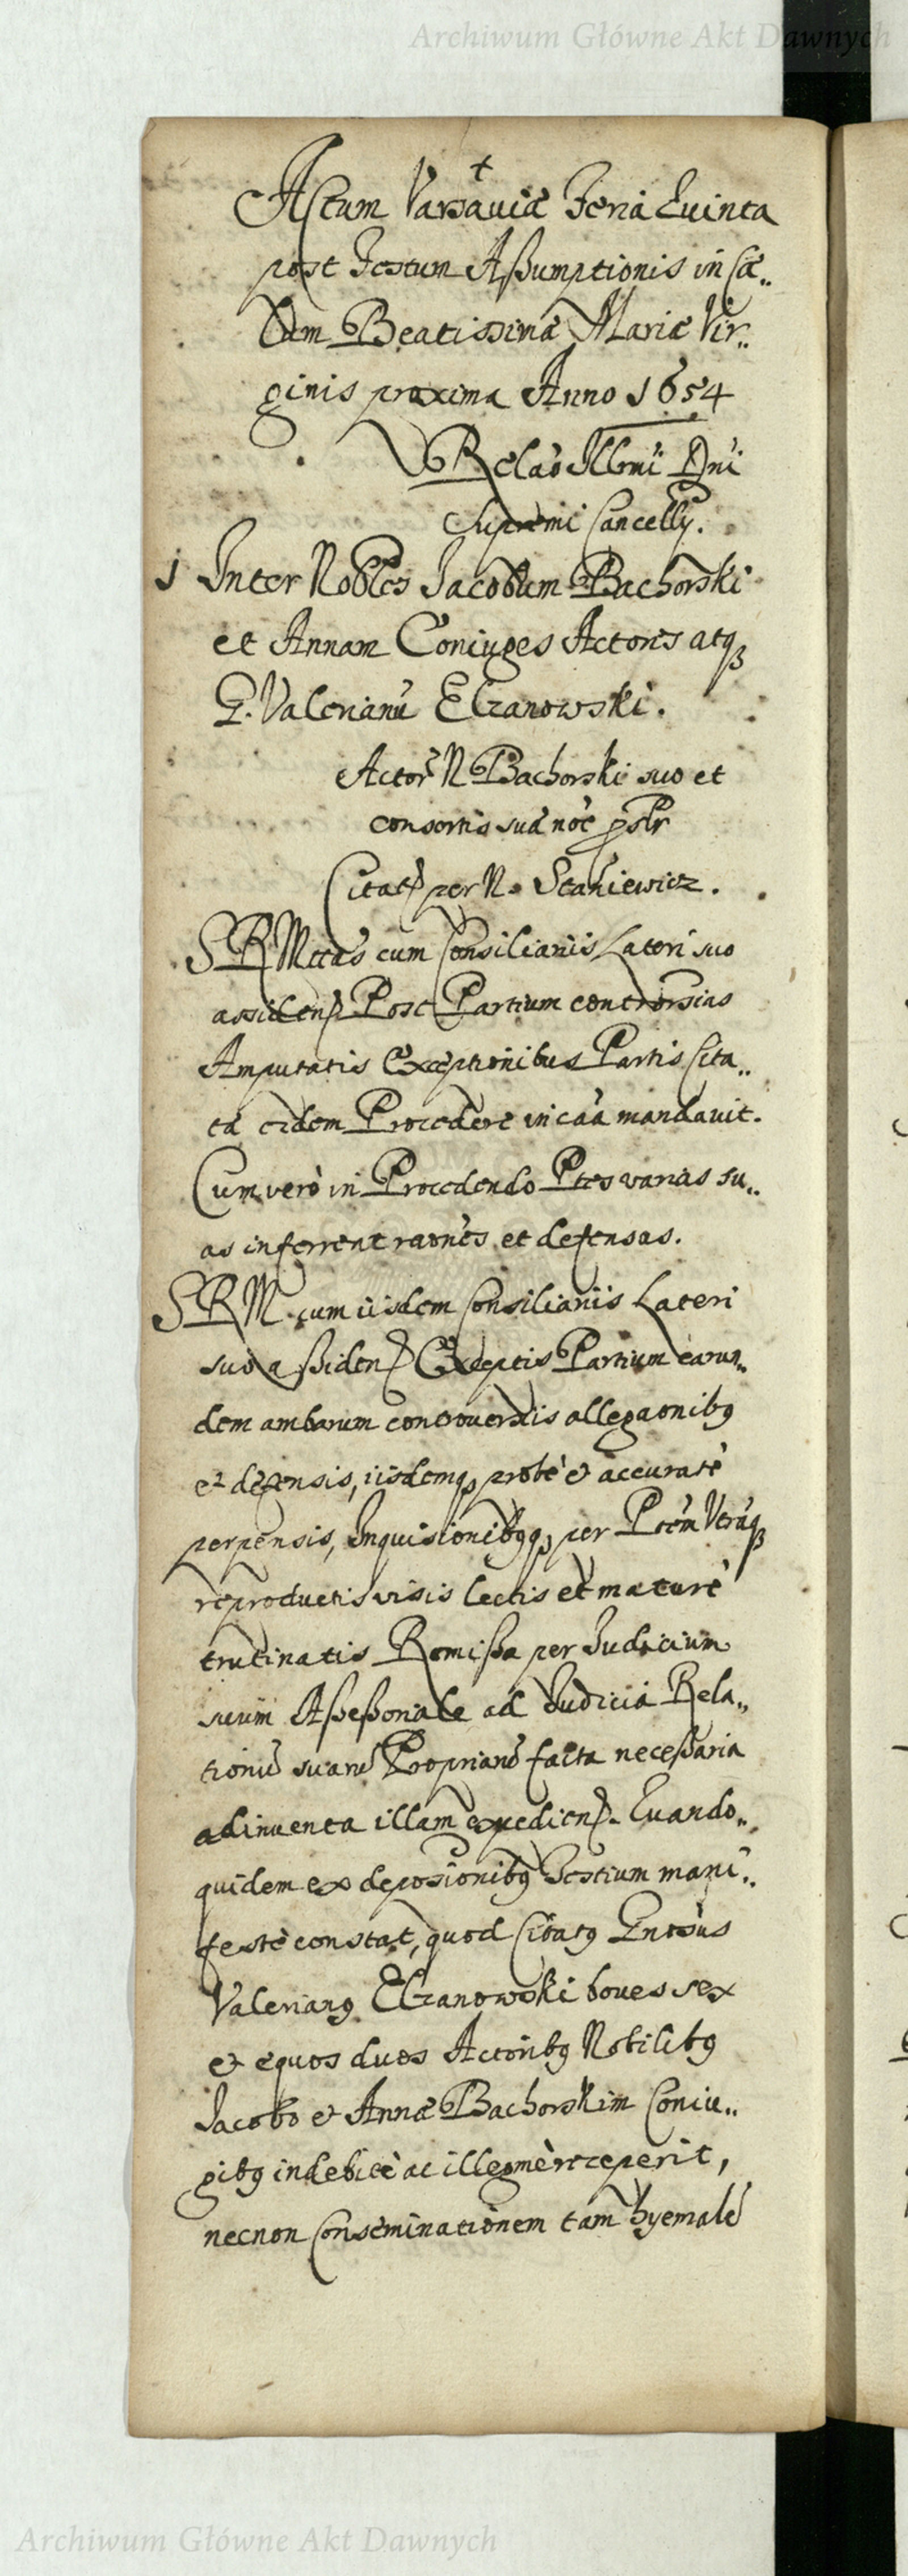 Archiwum Główne Akt Dawnych
†
Actum Varsaviæ Feria Quinta
post Festum Assumptionis in Cæ„
lum Beatissimæ Mariæ Vir„
ginis proxima Anno 1654
Relaõ Illmi Dni
Supremi Cancellỹ.
1 Inter Nobles Jacobum Bachorski
et Annam Coniuges Actores atqꝫ
G. Valerianũ Elzanowski.
Actor N Bachorski suo et
consortis suæ noĩe
Citatꝰ per N. Stakiewicz.
SRMttas cum Consiliariis Lateri suo
assiden. Post Partium controrsias
Amputatis Exceptionibus Partis Cita„
tæ eidem Procedere in caã mandavit.
Cum verò in Procedendo Ptes varias su„
as inferrent raones et defensas.
SRM. cum iisdem Consiliariis Lateri
suo assiden. Exceptis Partium earun„
dem ambarum controversiis allegaonibꝰ
et defensis, iisdemqꝫ probè et accuratè
perpensis, Inquisitionibꝰqꝫ per Ptem Utrãqꝫ
reproductis visis lectis et maturè
trutinatis Remissa per Judicium
suum Assessoriale ad Judicia Rela„
tionũ suarũ Propriarũ facta necessaria
adinventa illam expedien. Quando„
quidem ex deposionibꝰ Testium mani„
festè constat, quod Citatꝰ Gnrosus
Valerianꝰ Elzanowski boves sex
et equos duos Actoribꝰ Nobilibꝰ
Jacobo et Annæ Bachorskim Coniu„
gibꝰ indebitè ac illegmè receperit,
necnon Conseminationem tam hyemalẽ
Archiwum Główne Akt Dawnych